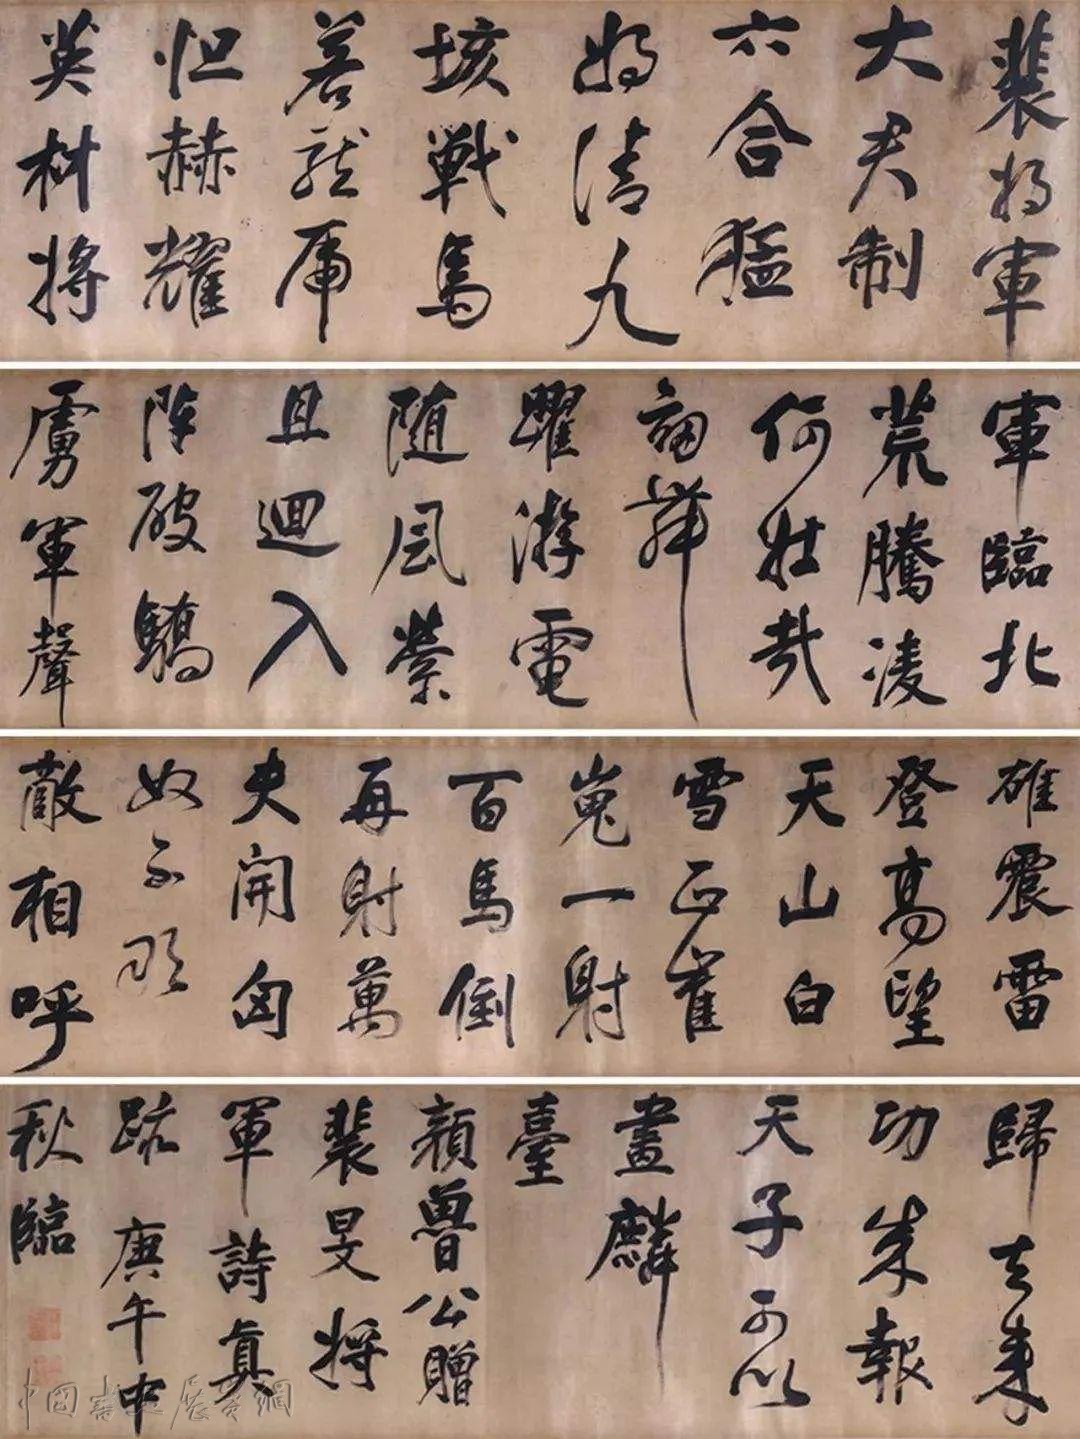 裴将軍
大君制
六合猛
将清九
垓戰馬
若龍虎
怛赫耀
英材將
軍臨北
荒騰凌
何壯哉
劍舞
躍游電
随風縈
且迴入
陣破驕
虜軍聲
雄震雷
登高望
天山白
雪正崔
嵬一射
百馬倒
再射萬
夫開匈
奴不敢
敵相呼
歸去来
功成報
天子可以
畫麟
臺
顏魯公贈
裴旻將
軍詩真
跡庚午中
秋臨
中國書法展賽網